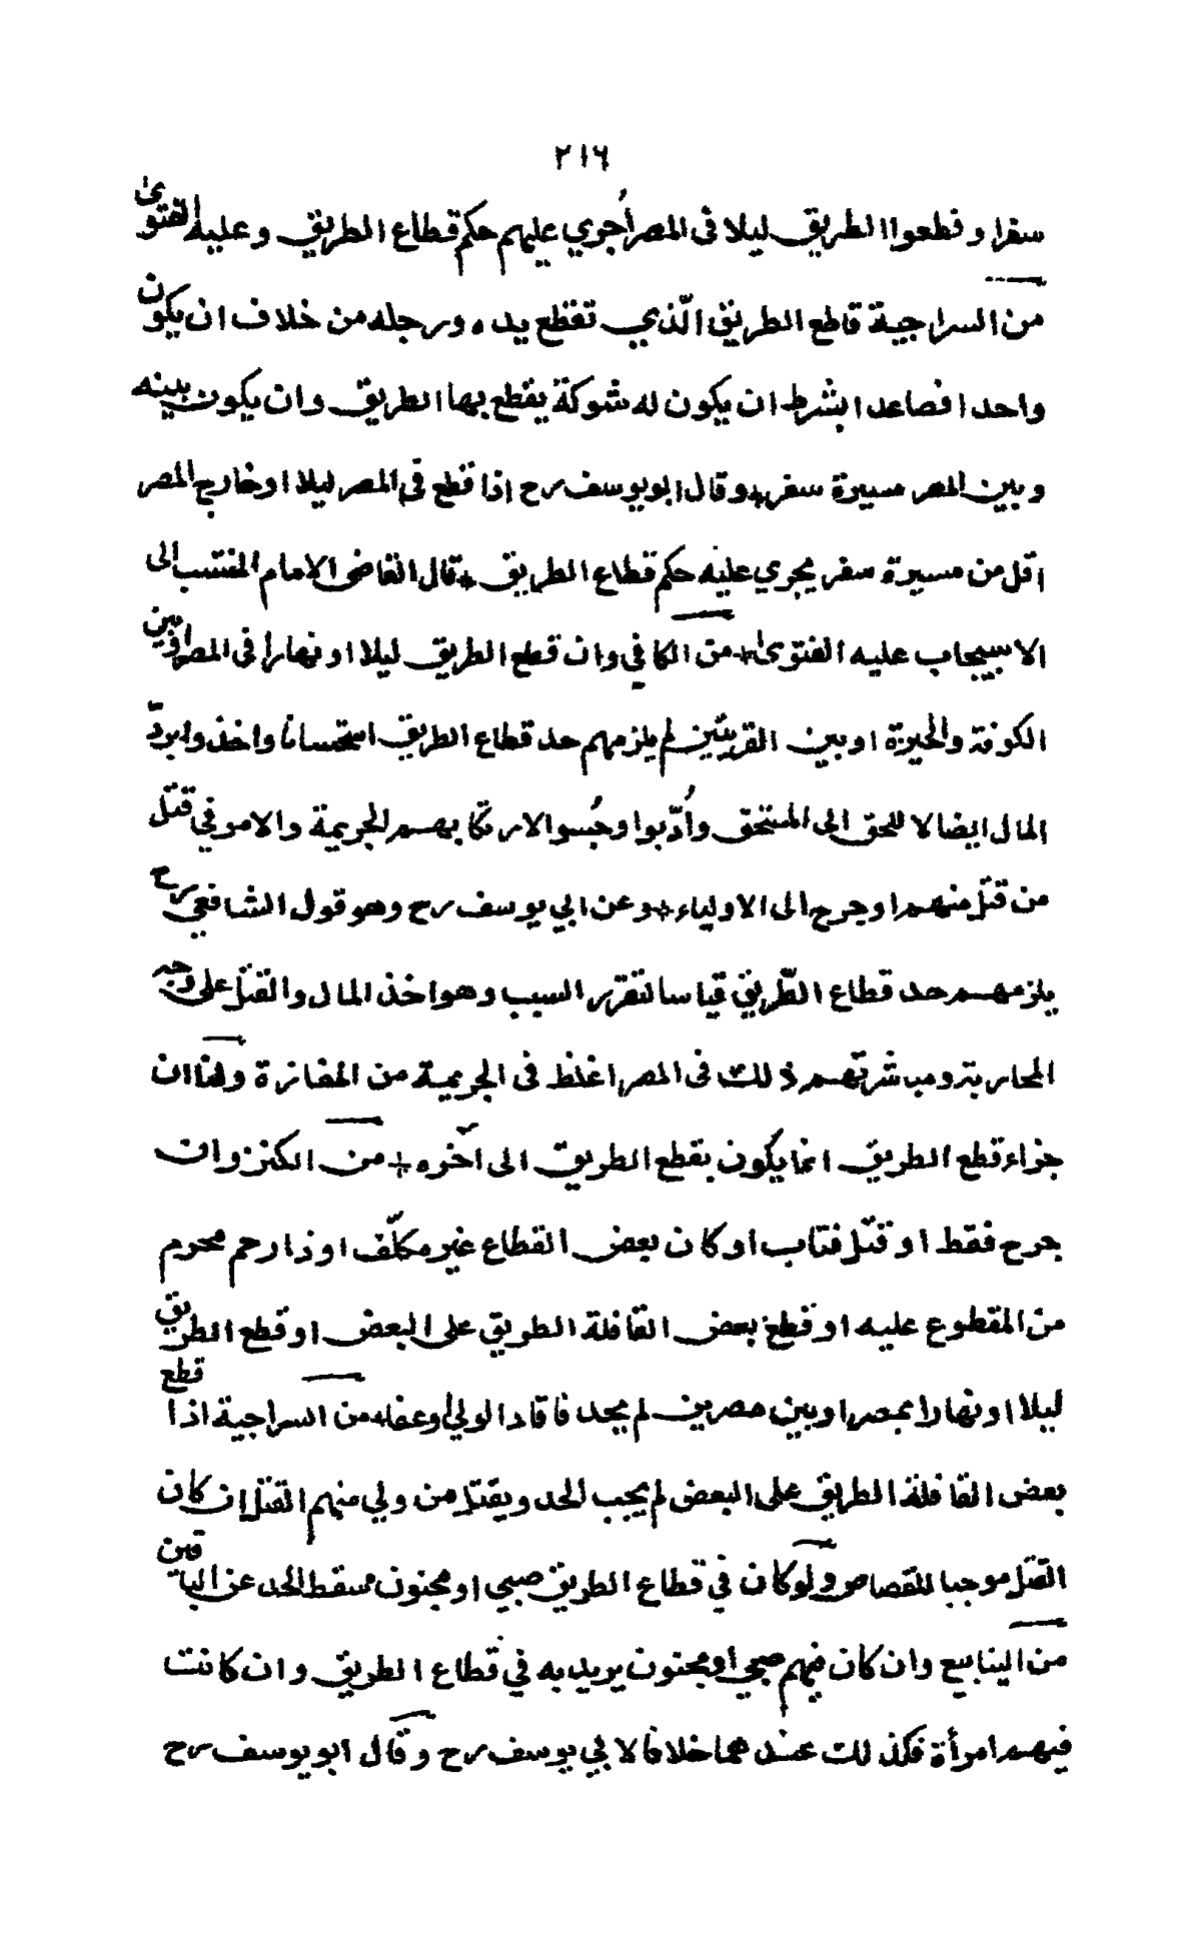 ٢١٦
سفرا وقطعوا الطريق ليلا فى المصر أُجري عليهم حكم قطاع الطريق وعليه الفتوىٰ
من السراجية قاطع الطريق الّذي تقطع يده ورجله من خلاف ان يكون
واحدا فصاعدا بشرط ان يكون له شوكة يقطع بها الطريق وان يكون بينه
وبين المصر مسيرة سفر وقال ابو يوسف رح اذا قطع فى المصر ليلا او خارج المصر
اقل من مسيرة سفر يجري عليه حكم قطاع الطريق قال القاضى الامام المنتسب الى
الاسبيجاب عليه الفتوىٰ من الكافي وان قطع الطريق ليلا او نهارا فى المصر او بين
الكوفة والحيرة او بين القريتين لم يلزمهم حد قطاع الطريق استحسانا واخذوا بردّ
المال ايصالا للحق الى المستحق وأُدّبوا وحُبسوا لارتكابهم الجريمة والامر في قتل
من قتل منهم او جرح الى الاولياء وعن ابي يوسف رح وهو قول الشافعي رح
يلزمهم حد قطاع الطّريق قياسا لتقرر السبب وهو اخذ المال والقتل على وجه
المحاربة ومباشرتهم ذلك فى المصر اغلظ فى الجريمة من المفازة ولنا ان
جزاء قطع الطريق انما يكون بقطع الطريق الى آخره من الكنز وان
جرح فقط او قتل فتاب او كان بعض القطاع غير مكلّف او ذا رحم محرم
من المقطوع عليه او قطع بعض القافلة الطريق على البعض او قطع الطريق
ليلا او نهارا بمصر او بين مصرين لم يحد فاقاد الولي او عفا من السراجية اذا قطع
بعض القافلة الطريق على البعض لم يجب الحد ويقتل من ولي منهم القتل ان كان
القتل موجبا للقصاص ولو كان في قطاع الطريق صبي او مجنون سقط الحد عن الباقين
من الينابيع وان كان فيهم صبي أو مجنون يريد به في قطاع الطريق وان كانت
فيهم امرأة فكذلك عندهما خلافا لابي يوسف رح وقال ابو يوسف رح